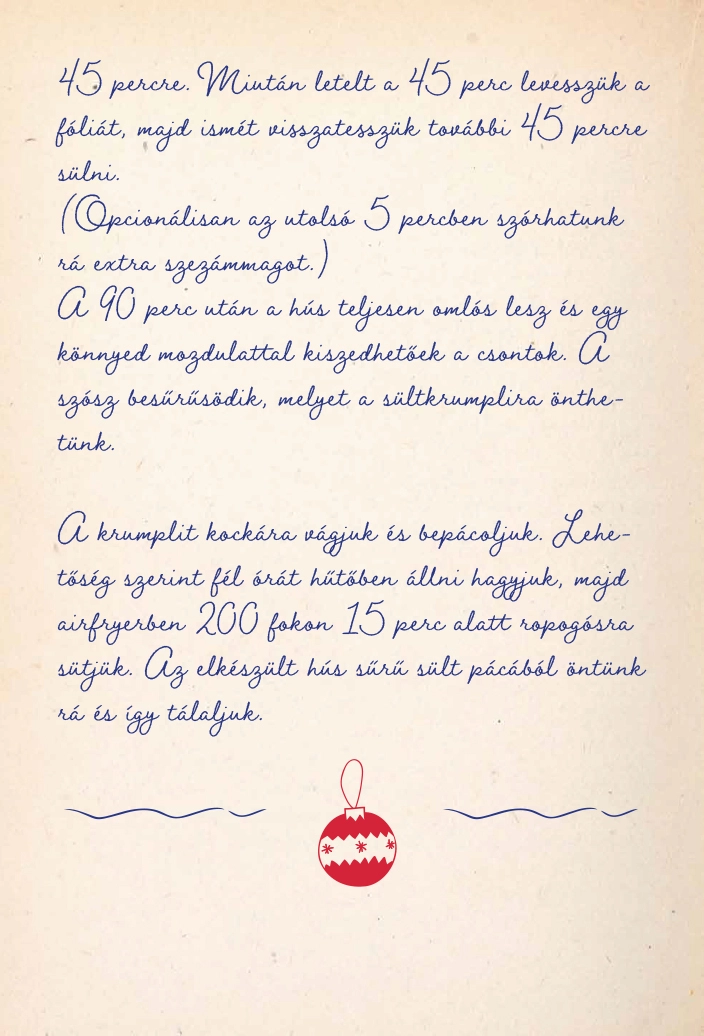 45 percre. Miután letelt a 45 perc levesszük a
fóliát, majd ismét visszatesszük további 45 percre
sülni.
(Opcionálisan az utolsó 5 percben szórhatunk
rá extra szezámmagot.)
A 90 perc után a hús teljesen omlós lesz és egy
könnyed mozdulattal kiszedhetőek a csontok. A
szósz besűrűsödik, melyet a sültkrumplira önthe-
tünk.
A krumplit kockára vágjuk és bepácoljuk. Lehe-
tőség szerint fél órát hűtőben állni hagyjuk, majd
airfryerben 200 fokon 15 perc alatt ropogósra
sütjük. Az elkészült hús sűrű sült pácából öntünk
rá és így tálaljuk.